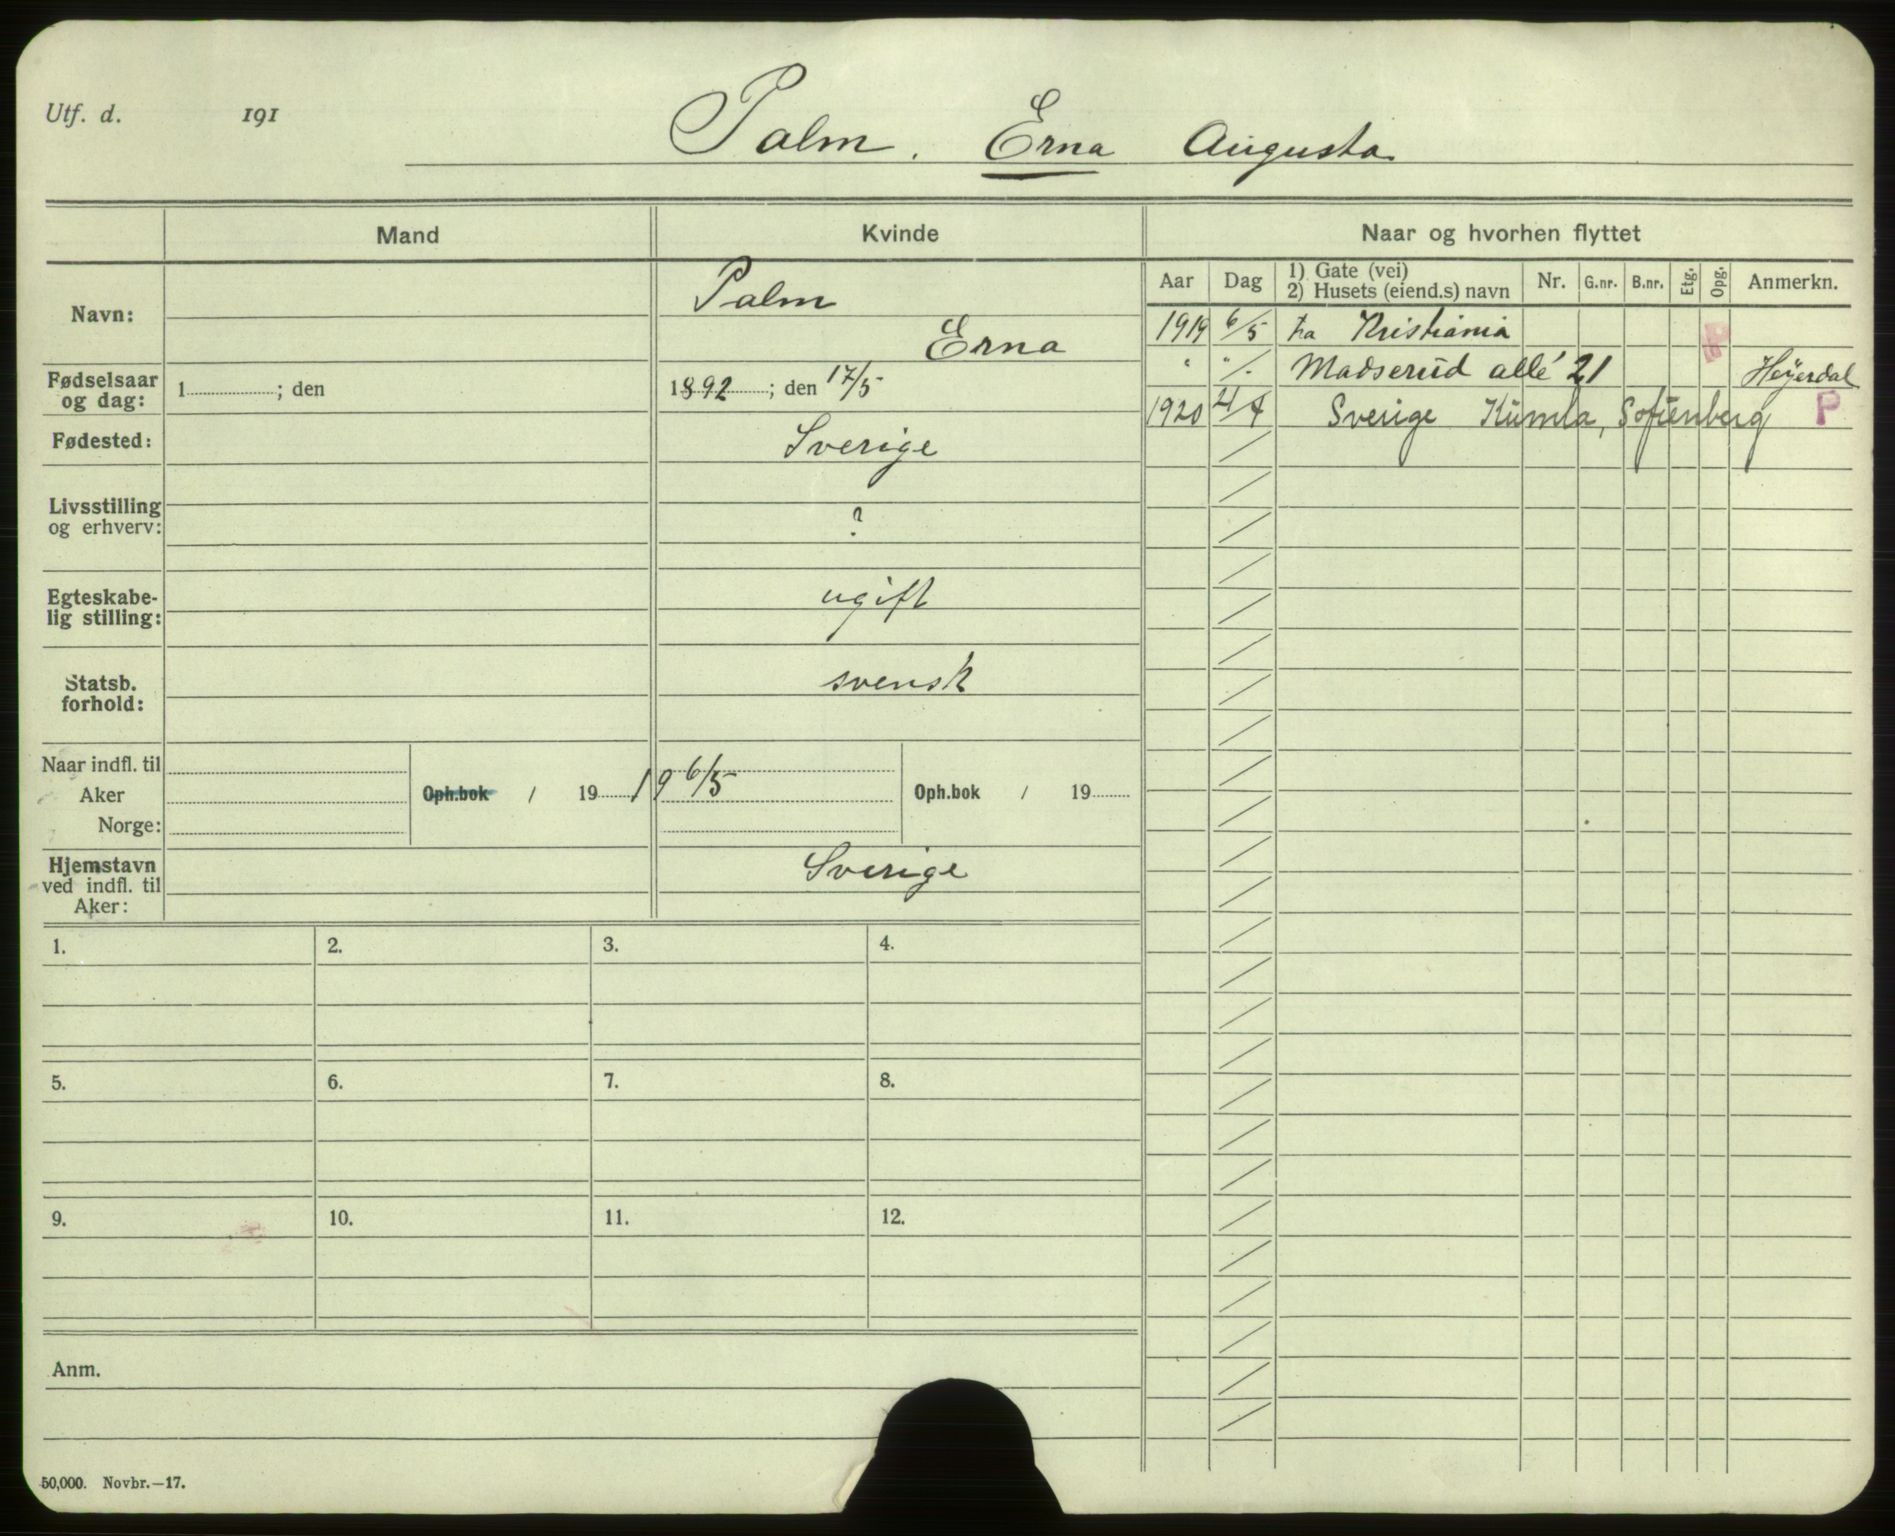 Utf. d. 191
Palm. Erna Augusta
Mand Kvinde Naar og hvorhen flyttet
Navn: Palm
Erna
Fødselsaar og dag: 1 ; den 1892 ; den 17/5
Fødested: Sverige
Livsstilling og erhverv: ?
Egteskabe-
lig stilling: ugift
Statsb. forhold: svensk
Naar indfl. til
Aker
Norge:
Oph.bok / 19 19 6/5 Oph.bok / 19
Hjemstavn
ved indfl. til
Aker:
Sverige
Aar Dag 1) Gate (vei)
2) Husets (eiend.s) navn Nr. G.nr. B.nr. Etg. Opg. Anmerkn.
1919 6/5 fra Kristiania P
" " /. Madserud allé 21 Heyerdal
1920 Sverige Kumla, Sofienberg P
1. 2. 3. 4.
5. 6. 7. 8.
9. 10. 11. 12.
Anm.
50,000. Novbr.—17.